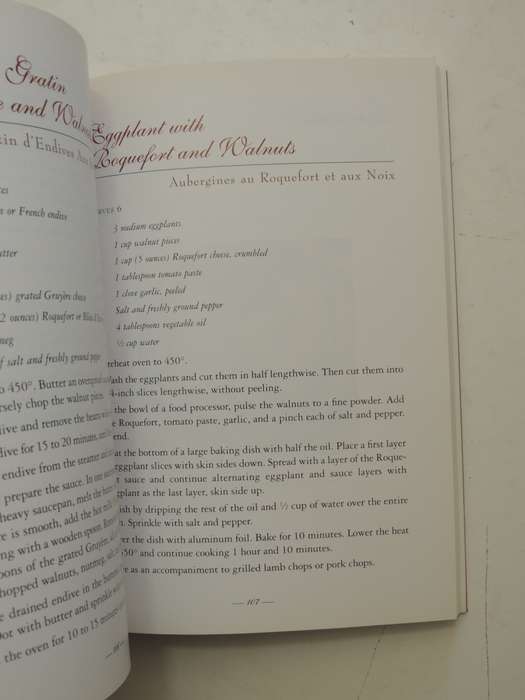 Gratin
and Waln
in d'Endives Au
s or French endive
tter
es) grated Gruyère cheese
2 ounces) Roquefort or
eg
f salt and freshly ground pepper
o 450°. Butter an ovenproof
rsely chop the walnut pieces
ive and remove the hearts
dive for 15 to 20 minutes,
endive from the steamer
prepare the sauce. In one
heavy saucepan, melt the butter
re is smooth, add the hot milk
ng with a wooden spoon.
oons of the grated Gruyère,
hopped walnuts, nutmeg, salt,
e drained endive in the
Dot with butter and sprinkle
the oven for 10 to 15 minutes
Eggplant with
Roquefort and Walnuts
Aubergines au Roquefort et aux Noix
rves 6
3 medium eggplants
1 cup walnut pieces
1 cup (5 ounces) Roquefort cheese, crumbled
1 tablespoon tomato paste
1 clove garlic, peeled
Salt and freshly ground pepper
4 tablespoons vegetable oil
½ cup water
reheat oven to 450°.
ash the eggplants and cut them in half lengthwise. Then cut them into
4-inch slices lengthwise, without peeling.
the bowl of a food processor, pulse the walnuts to a fine powder. Add
e Roquefort, tomato paste, garlic, and a pinch each of salt and pepper.
end.
at the bottom of a large baking dish with half the oil. Place a first layer
eggplant slices with skin sides down. Spread with a layer of the Roque-
t sauce and continue alternating eggplant and sauce layers with
gplant as the last layer, skin side up.
ish by dripping the rest of the oil and ½ cup of water over the entire
h. Sprinkle with salt and pepper.
er the dish with aluminum foil. Bake for 10 minutes. Lower the heat
350° and continue cooking 1 hour and 10 minutes.
e as an accompaniment to grilled lamb chops or pork chops.
— 107 —